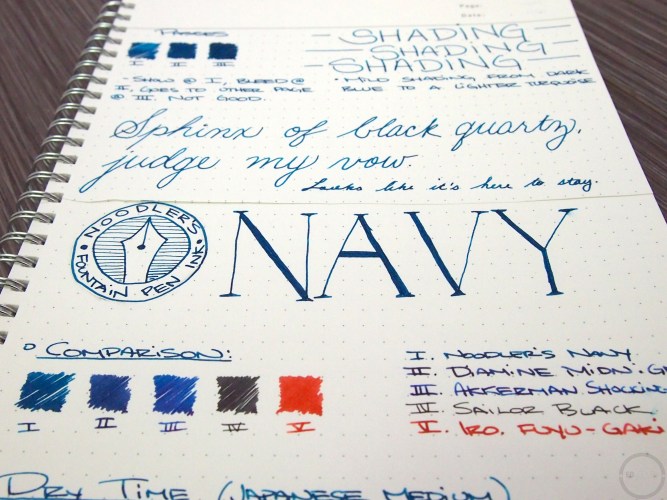 Page:
Date:
PASSES
I II III
SHADING
SHADING
SHADING
- SHOW @ I, BLEED @
II, GOES TO OTHER PAGE
@ III. NOT GOOD.
- MILD SHADING FROM DARK
BLUE TO A LIGHTER TURQUOISE
Sphinx of black quartz,
judge my vow.
Looks like it's here to stay.
NOODLER'S
FOUNTAIN PEN INK
NAVY
COMPARISON:
I II III IV V
I. NOODLER'S NAVY
II. DIAMINE MIDN.
III. AKKERMAN
IV. SAILOR BLACK
V. IRO. FUYU-GAKI
DRY TIME (JAPANESE MEDIUM)